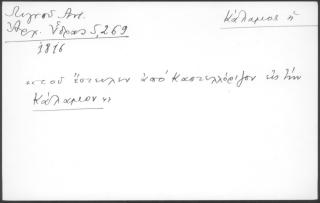 Λιγνοῦ Ἀντ.
Ἀρχ. Ὕδρας 5,269
1816
Κάλαμιον ἡ
"τοῦ ἔστειλεν ἀπό Καστελλόριζον εἰς τήν
Κάλαμιον"